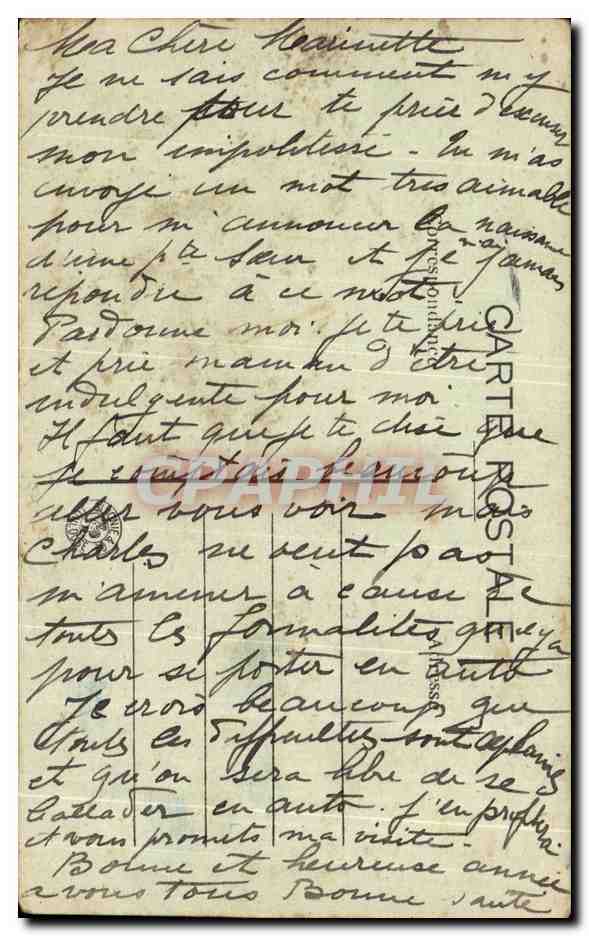 Ma Chère Marinette
Je ne sais comment m'y
prendre pour te prier d'excuser
mon impolitesse - Tu m'as
envoyé un mot très aimable
pour m'annoncer la naissance
d'une pte sœur et je n'ai jamais
répondu à ce mot.
Pardonne moi. Je te prie
et prie maman d'être
indulgente pour moi
Il faut que je te dise que
je comptais beaucoup
aller vous voir mais
Charles ne veut pas
m'amener à cause de
toutes les formalités qu'il y a
pour se porter en auto
Je crois beaucoup que
toutes les difficultés sont aplanies
et qu'on sera libre de se
ballader en auto. J'en profiterai
et vous promets ma visite -
Bonne et heureuse année
a vous tous Bonne santé
CARTE POSTALE
Correspondance
Adresse
CPAPHIL